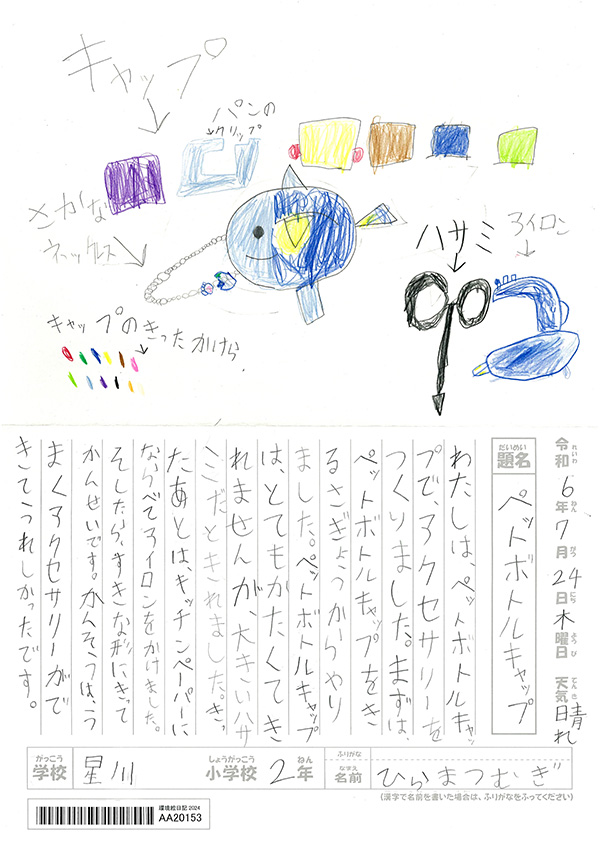 キャップ
パンの
クリップ
さかな
ネックレス
ハサミ
アイロン
キャップのきったかけら
令和6年7月24日木曜日 天気 晴れ
れいわ ねん がつ にち ようび てんき
だいめい
題名
ペットボトルキャップ
わたしは、ペットボトルキャッ
プで、アクセサリーを
つくりました。まずは、
ペットボトルキャップをき
るさぎょうからやり
ました。ペットボトルキャップ
は、とてもかたくてき
れませんが、大きいハサ
ミだときれました。きっ
たあとは、キッチンペーパーに
ならべてアイロンをかけました。
そしたら、すきな形にきって
かんせいです。かんそうは、う
まくアクセサリーがで
きてうれしかったです。
がっこう
学校
星川
しょうがっこう
小学校
2
ねん
年
ふりがな
なまえ
名前
ひらまつむぎ
(漢字で名前を書いた場合は、ふりがなをふってください)
環境絵日記 2024
AA20153